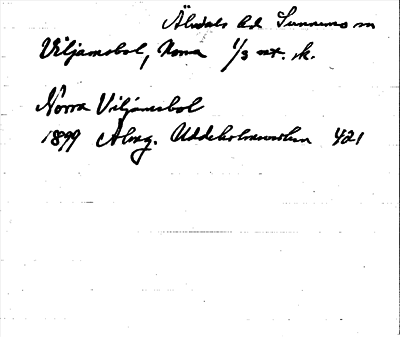 Älvdals hd Sunnemo sn
Viljamsbol, Norra 1/3 mt. sk.
Norra Viljamsbol
1899 Almg. Uddeholmsverken 421